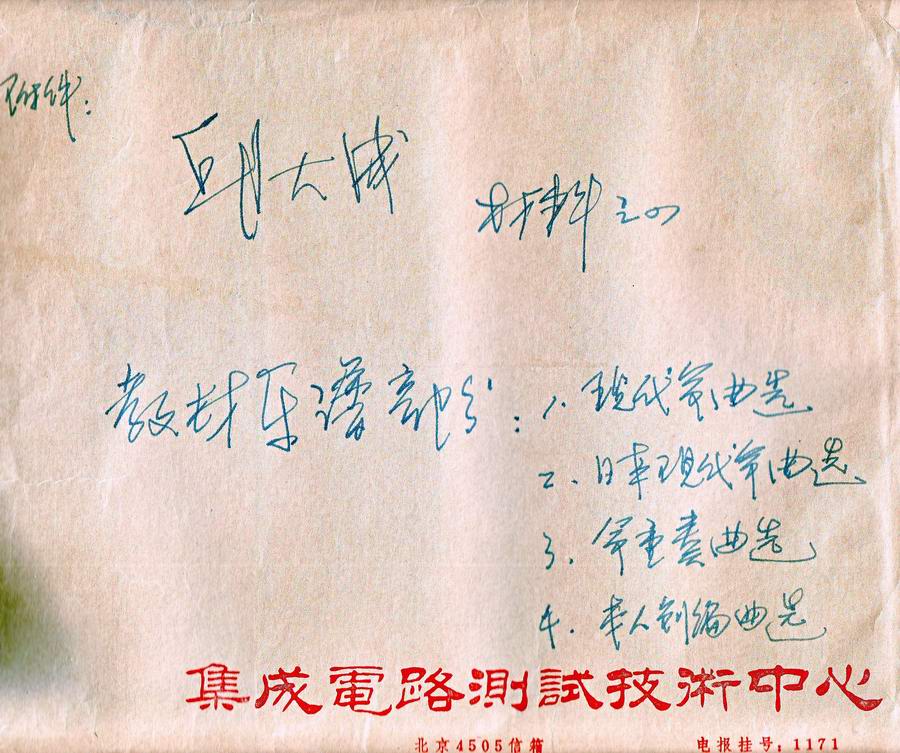 附件:
邱大成
材料之四
教材乐谱部分:
1. 现代筝曲选
2. 日本现代筝曲选
3. 筝重奏曲选
4. 本人创编曲选
集成電路測試技術中心
北京4505信箱
电报挂号:1171